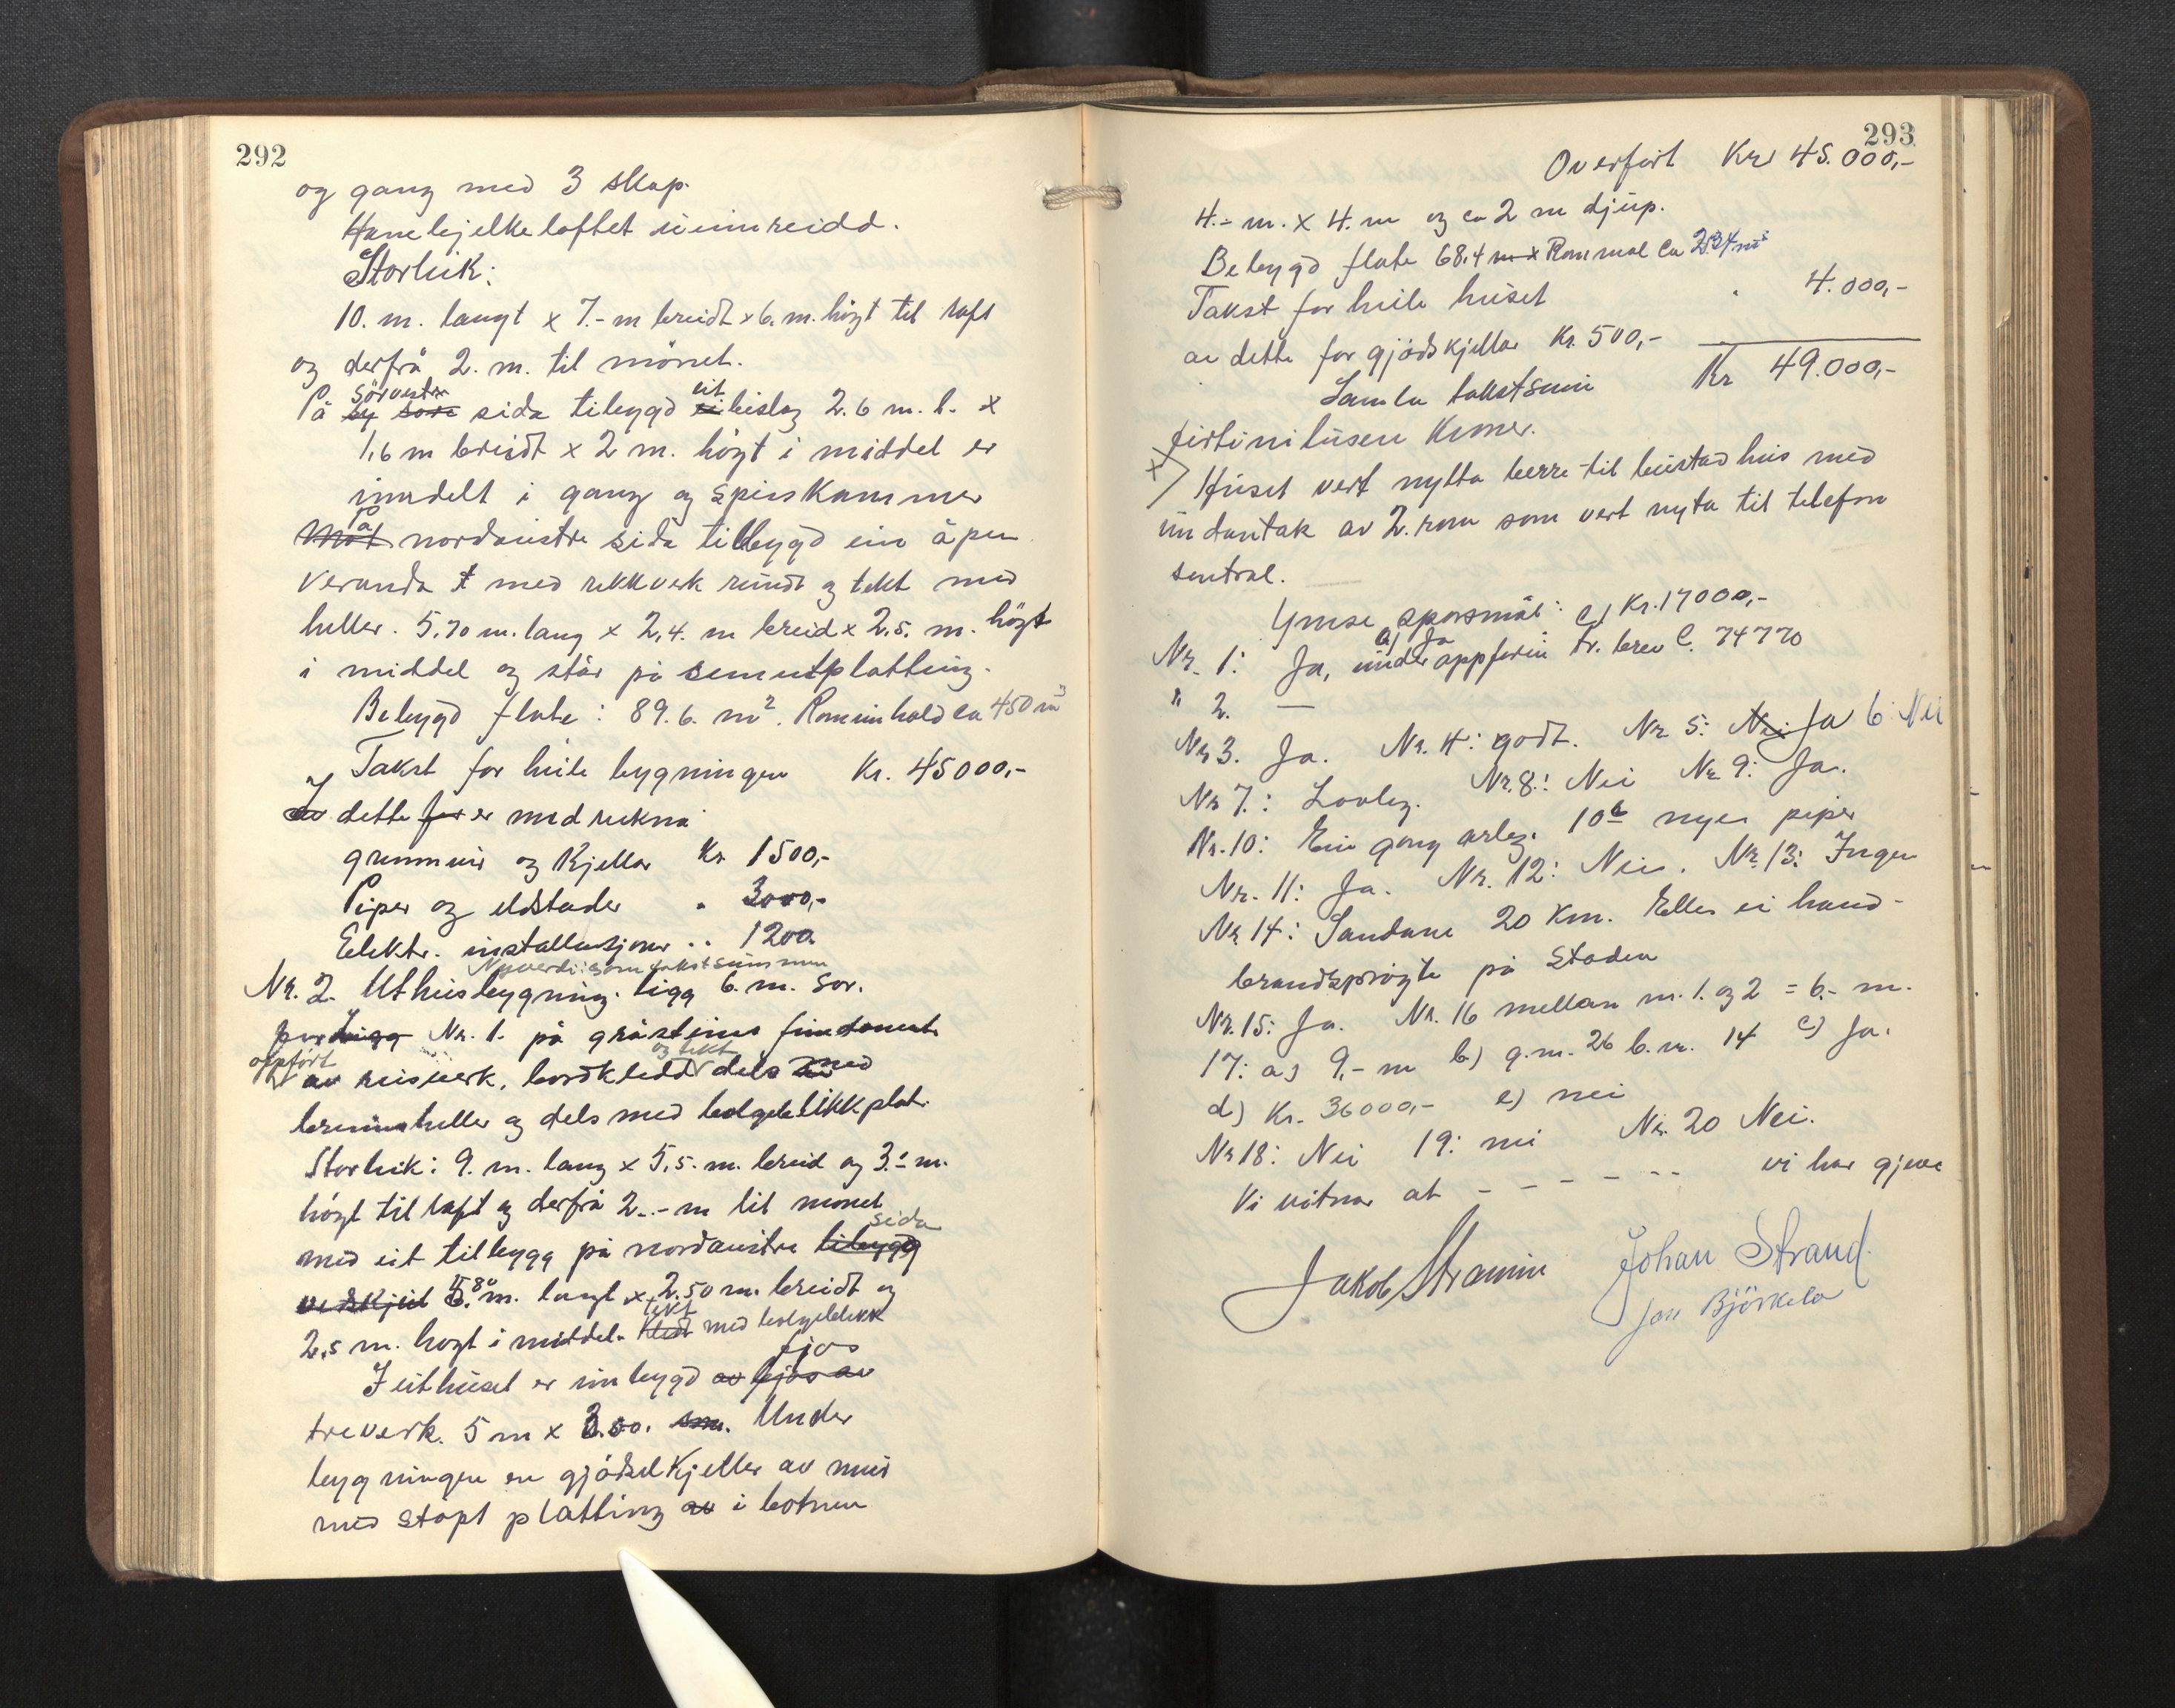 292
og gang med 3 skap.
Hanebjelkeloftet uinnreidd.
Storleik:
10. m. langt x 7.- m breidt x 6. m. högt til raft
og derfrå 2. m. til mönet.
På sörvestre sida tilbygd eit bislag 2.6 m. l. x
1,6 m breidt x 2 m. högt i middel er
inndelt i gang og spiskammer
På nordaustre sida tilbygd ein åpen
veranda med rekkverk rundt og tekt med
heller. 5,70 m. lang x 2,4. m breid x 2,5. m. högt
i middel og står på sementplatting.
Bebygd flate: 89.6. m². Rominhald ca 450 m³
Takst for heile bygningen Kr. 45000,-
I dette er medrekna
grunnmur og Kjellar Kr 1500,-
Piper og eldstader " 3000,-
Elektr. installasjoner .. 1200.
Nyverdi: som takstsummen
Nr. 2. Uthusbygning. ligg 6. m. sör.
for Nr. 1. på gråsteins fundament
oppfört av reisverk, bordkledd og tekt dels med
heller og dels med bolgeblikkplat.
Storleik: 9. m. lang x 5,5. m. breid og 3.- m.
högt til raft og derfrå 2.- m til mönet
med eit tilbygg på nordaustre sida
4.80 m. langt x 2.50 m. breidt og
2,5 m. högt i middel. tekt med bolgeblekk
I uthuset er innbygd fjos
treverk. 5 m x 3.50. Under
bygningen er gjödselkjeller av mur
med stöpt platting i botnen
293
Overfört Kr 45.000,-
4.- m. x 4. m og ca 2 m djup.
Bebygd flate 68,4 m x Rommal ca 234 m³
Takst for heile huset " 4.000,-
av dette for gjödskjellar Kr. 500,-
Samla takstsum Kr 49.000,-
förtinitusen Kroner.
x) Huset vert nytta berre til bustadhus med
undantak av 2. rom som vert nyta til telefon
sentral.
Ymse spörsmål: c) Kr. 17000,-
a) Ja
Nr. 1: Ja, under oppföring br. brev C. 74770
" 2. —
Nr 3. Ja. Nr. 4: godt. Nr 5: Ja 6: Nei
Nr 7.: Lovleg. Nr. 8.: Nei Nr 9: Ja.
Nr. 10: Ein gong årleg. 10b nyei piper
Nr. 11: Ja. Nr. 12: Nei. Nr. 13: Ingen
Nr 14: Sandane 20 Km. Elles ei hand-
brandspröyte på staden
Nr. 15: Ja. Nr. 16 mellan nr. 1. og 2 = 6.- m.
17: a) 9,- m b) g.nr. 26 b.nr. 14 c) Ja.
d) Kr. 36000,- e) nei
Nr 18: Nei 19: nei Nr. 20 Nei.
Vi vitnar at - - - - - - vi har gjeve
Jakob Straumn Johan Strand.
Jon Björkelo